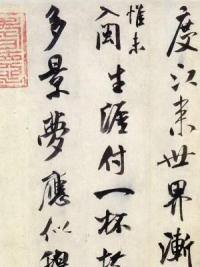 度江來世界漸
惟未
入閩生涯付一杯
多景夢應似